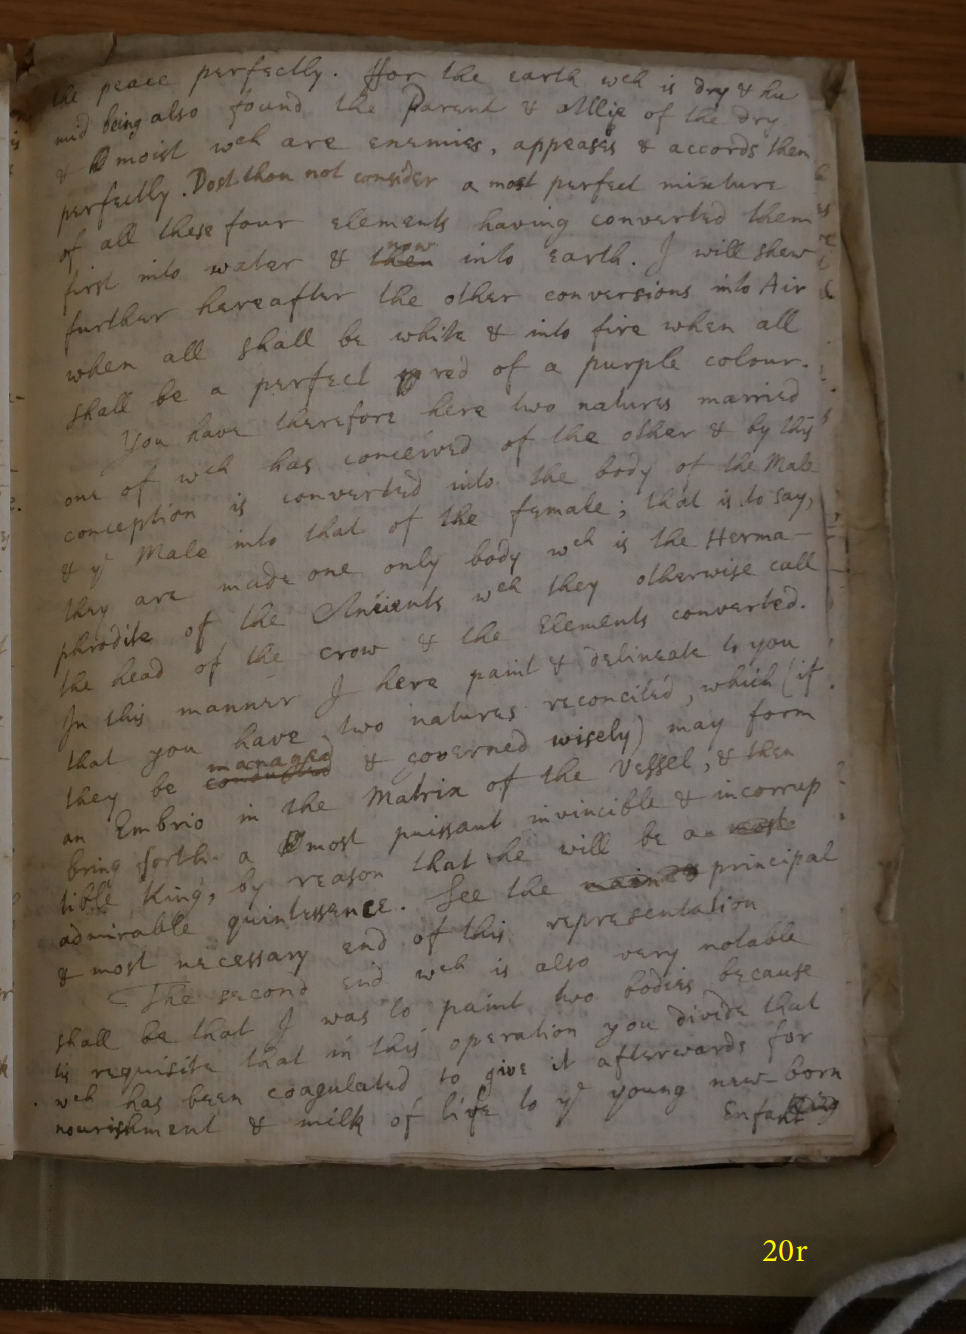 the peace perfectly. ffor the earth wch is dry & hu
mid being also found the Parent & Allie of the dry
& moist wch are enemies, appeases & accords them
perfectly. Dost thou not consider a most perfect mixture
of all these four elements having converted them
first into water & then now into earth. I will shew
further hereafter the other conversions into Air
when all shall be white & into fire when all
shall be a perfect red of a purple colour.
You have therefore here two natures married
one of wch has conceived of the other & by this
conception is converted into the body of the Male
& ye Male into that of the female; that is to say,
they are made one only body wch is the Herma-
phrodite of the Ancients wch they otherwise call
the head of the crow & the Elements converted.
In this manner I here paint & delineate to you
that you have two natures reconciled, which (if
they be managed & governed wisely) may form
an Embrio in the Matrix of the Vessel, & then
bring forth a most puissant invincible & incorrup
tible King, by reason that he will be an most
admirable quintessence. See the principal
& most necessary end of this representation
The second end wch is also very notable
shall be that I was to paint two bodies because
tis requisite that in this operation you divide that
wch has been coagulated to give it afterwards for
nourishment & milk of life to ye young new-born
Enfant King
20r